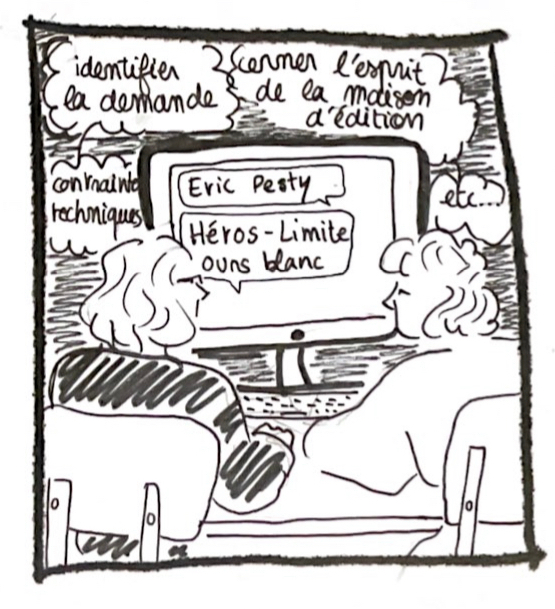 identifier
la demande
cerner l'esprit
de la maison
d'édition
contrainte
techniques
etc...
Eric Pesty
Héros-Limite
ours blanc